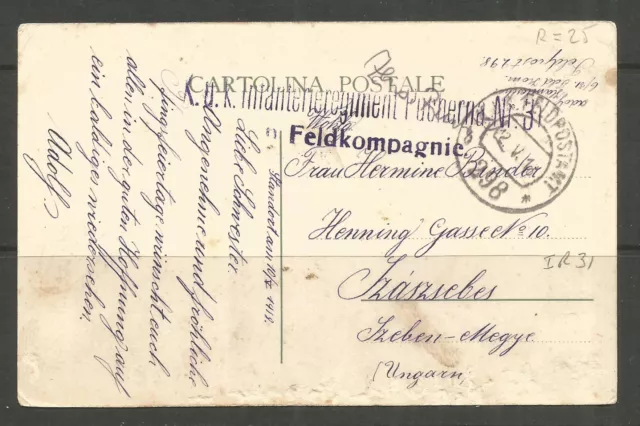 R=25
CARTOLINA POSTALE
K.u.k. Infanterieregiment Pucherna Nr. 31
Feldkompagnie
K.u.K. FELDPOSTAMT
12. V.
298
Feldpost 298
Standort am 10/5 1918.
Liebe Schwester
Angenehme und fröhliche
Pfingstfeiertage wünscht euch
allen in der guten Hoffnung auf
ein baldiges wiedersehen.
Adolf
Frau Hermine Binder
Henning Gasse No 10.
IR31
Szászsebes
Szeben-Megye
(Ungarn)